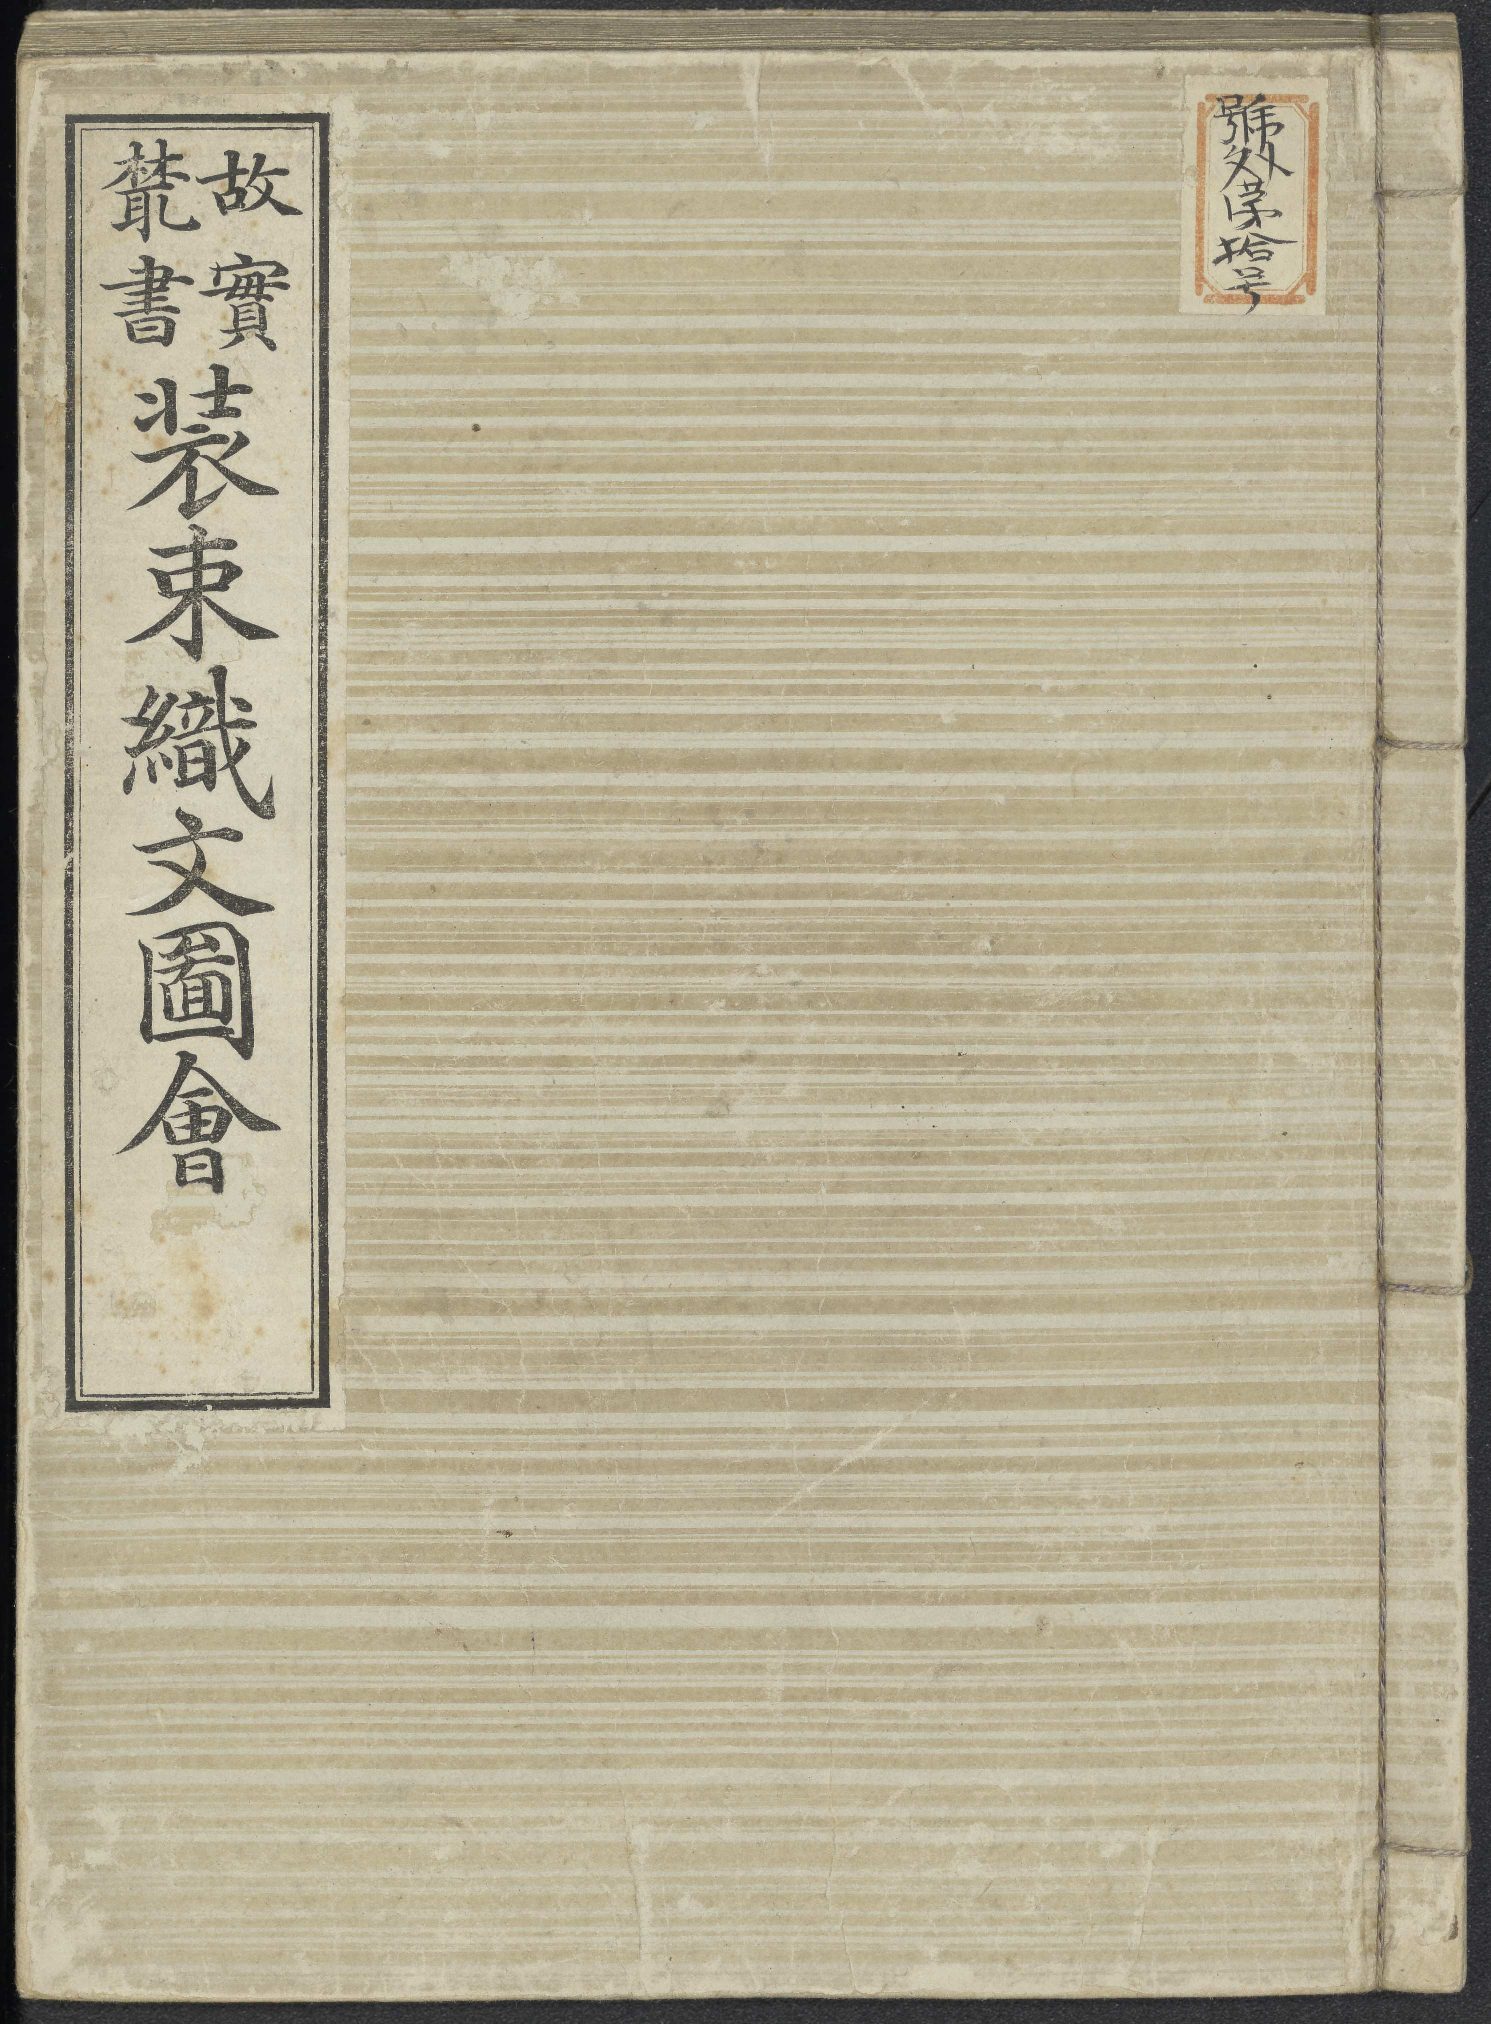 號外第拾号
故實
叢書
装束織文圖會